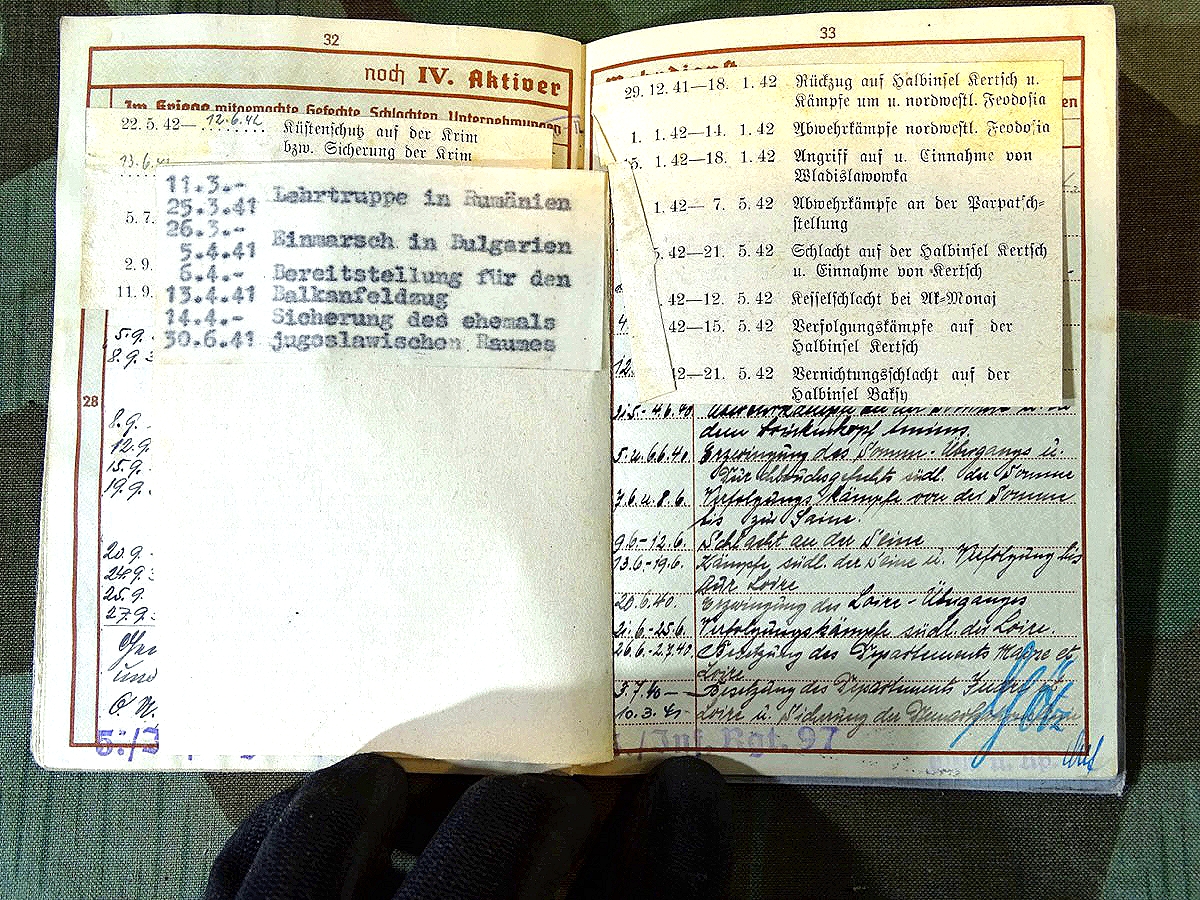 32
noch IV. Aktiver
Im Kriege mitgemachte Gefechte, Schlachten, Unternehmungen
22. 5. 42— 12.6.42 Küstenschutz auf der Krim
bzw. Sicherung der Krim
13.6.
11.3.-
25.3.41 Lehrtruppe in Rumänien
26.3.-
5.4.41 Einmarsch in Bulgarien
6.4.- Bereitstellung für den
13.4.41 Balkanfeldzug
14.4.- Sicherung des ehemals
30.6.41 jugoslawischen Raumes
5. 7.
2. 9.
11. 9.
5.9.
8.9.
28
8.9.
12.9.
15.9.
19.9.
20.9.
24.9.
25.9.
27.9.
und
5./
33
29. 12. 41—18. 1. 42 Rückzug auf Halbinsel Kertsch u.
Kämpfe um u. nordwestl. Feodosia
1. 1. 42—14. 1. 42 Abwehrkämpfe nordwestl. Feodosia
5. 1. 42—18. 1. 42 Angriff auf u. Einnahme von
Wladislawowka
1. 42— 7. 5. 42 Abwehrkämpfe an der Parpatsch-
stellung
5. 42—21. 5. 42 Schlacht auf der Halbinsel Kertsch
u. Einnahme von Kertsch
42—12. 5. 42 Kesselschlacht bei Ak-Monaj
42—15. 5. 42 Verfolgungskämpfe auf der
Halbinsel Kertsch
42—21. 5. 42 Vernichtungsschlacht auf der
Halbinsel Baksy
dem Brückenkopf Amiens.
5. u. 6.6.40. Erzwingung des Somme-Übergangs u.
Durchbruchsgefechte südl. der Somme
7.6. u. 8.6. Verfolgungskämpfe von der Somme
bis zur Seine.
9.6.-12.6. Schlacht an der Seine
13.6-19.6. Kämpfe südl. der Seine u. Verfolgung bis
zur Loire
20.6.40. Erzwingung des Loire-Überganges
21.6.-25.6. Verfolgungskämpfe südl. der Loire.
26.6.-2.7.40 Besetzung des Departements Maine et
Loire
3.7.40 — Besetzung des Departements Indre et
10.3.41- Loire u. Sicherung der
/Inf. Rgt. 97